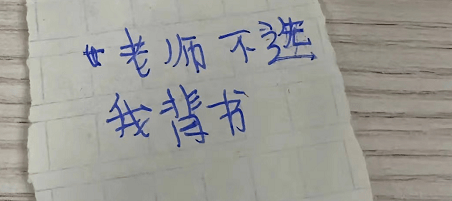 “老师不选
我背书